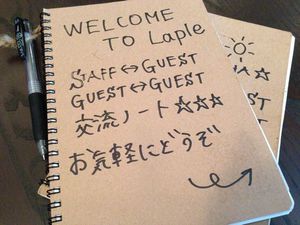 WELCOME
TO Laple
STAFF↔GUEST
GUEST↔GUEST
交流ノート☆☆☆
お気軽にどうぞ